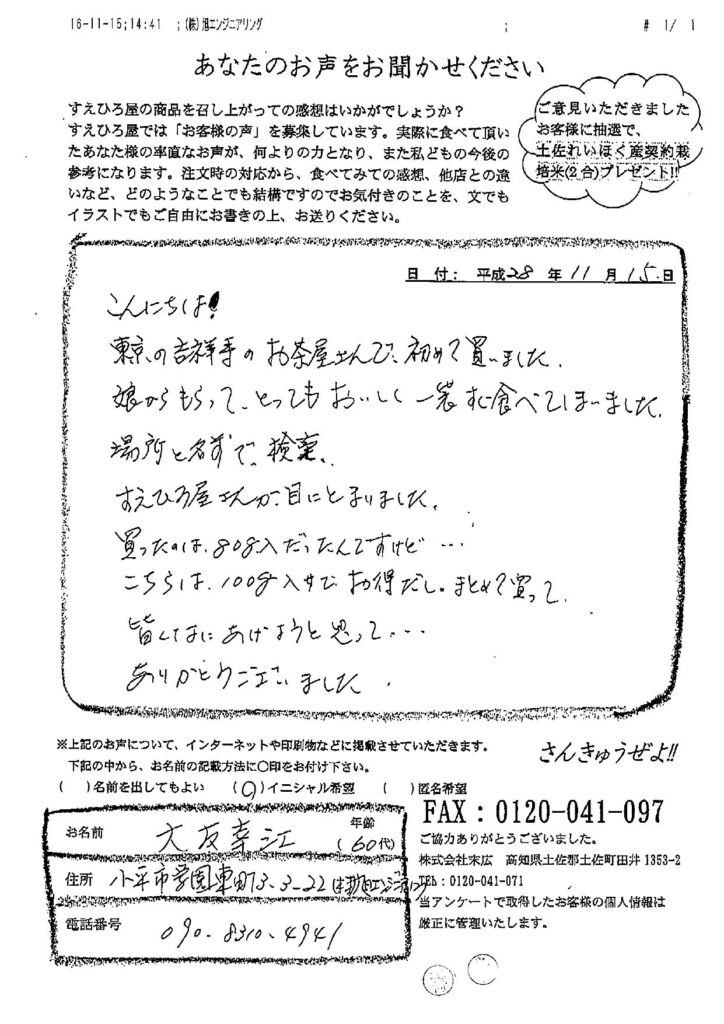 16-11-15;14:41 ;(株)旭エンジニアリング ; # 1/ 1
あなたのお声をお聞かせください
すえひろ屋の商品を召し上がっての感想はいかがでしょうか？
すえひろ屋では「お客様の声」を募集しています。実際に食べて頂い
たあなた様の率直なお声が、何よりの力となり、また私どもの今後の
参考になります。注文時の対応から、食べてみての感想、他店との違
いなど、どのようなことでも結構ですのでお気付きのことを、文でも
イラストでもご自由にお書きの上、お送りください。
ご意見いただきました
お客様に抽選で、
土佐れいほく産契約栽
培米(2合)プレゼント!!
日 付： 平成28 年 11 月 15 日
こんにちは！
東京の吉祥寺のお茶屋さんで、初めて買いました.
娘からもらって、とってもおいしく一袋すぐ食べてしまいました.
場所と名まで、検索、
すえひろ屋さんが、目にとまりました.
買ったのは、80g入だったんですけど…
こちらは、100g入りでお得だし。まとめて買って、
皆んなにあげようと思って…
ありがとうございました.
※上記のお声について、インターネットや印刷物などに掲載させていただきます。
下記の中から、お名前の記載方法に〇印をお付け下さい。
さんきゅうぜよ!!
( )名前を出してもよい (〇)イニシャル希望 ( )匿名希望
FAX：0120-041-097
お名前 大友幸江 年齢 (60代)
ご協力ありがとうございました。
株式会社末広 高知県土佐郡土佐町田井 1353-2
住所 小平市学園東町3-3-22
TEL：0120-041-071
当アンケートで取得したお客様の個人情報は
厳正に管理いたします。
電話番号 090-8310-4941